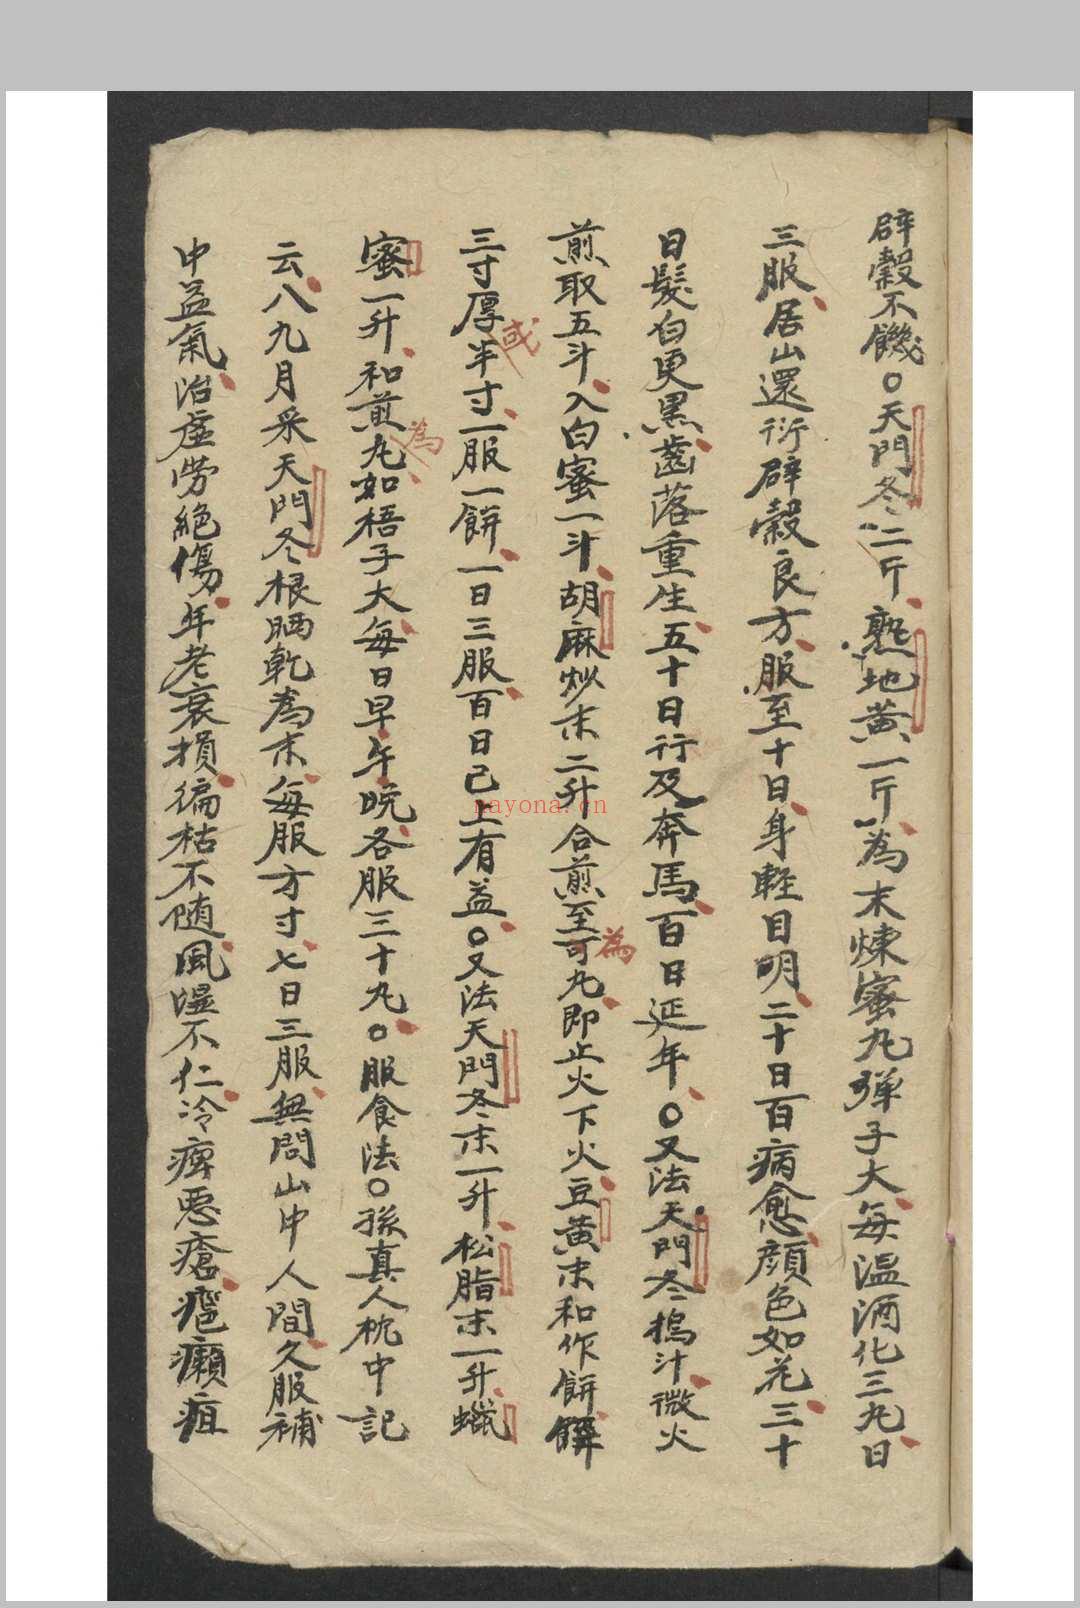 辟穀不饑○天門冬二斤熟地黃一斤為末煉蜜丸弹子大每温酒化三丸日
三服居山還行辟穀良方服至十日身輕目明二十日百病愈顔色如花三十
日髮白更黑齒落重生五十日行及奔馬百日延年○又法天門冬搗汁微火
煎取五斗入白蜜一斗胡麻炒末二升合煎至可丸即止火下火豆黃末和作餅
為
三寸厚半寸一服一餅一日三服百日已上有益○又法天門冬末一升松脂末一升蠟
或
蜜一升和煎丸如梧子大每日早午晚各服三十丸○服食法○孫真人枕中記
為
云八九月采天門冬根晒乾為末每服方寸七日三服無問山中人間久服補
中益氣治虚勞絶傷年老衰損偏枯不随風濕不仁冷痺惡瘡癰癩疽
nayona.cn